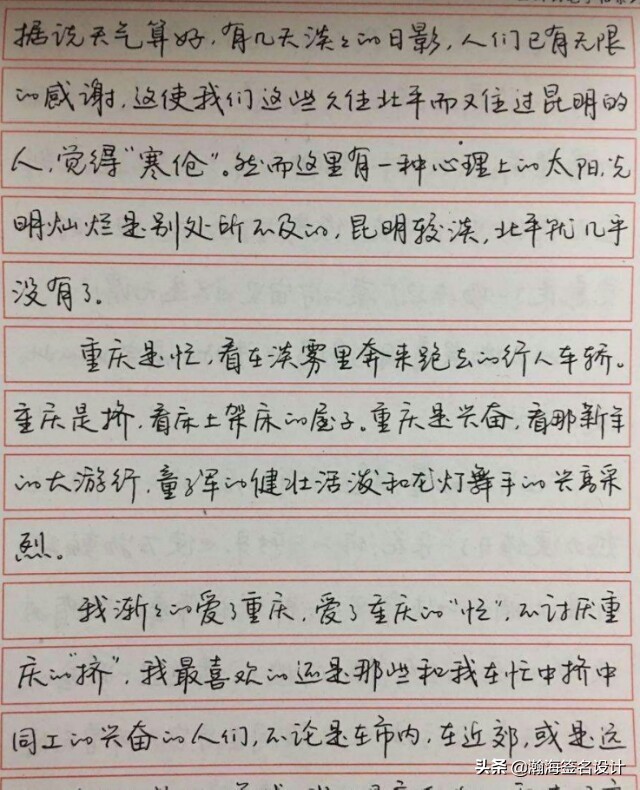 据说天气算好，有几天淡淡的日影，人们已有无限
的感谢，这使我们这些久住北平而又住过昆明的
人，觉得“寒伧”。然而这里有一种心理上的太阳，光
明灿烂是别处所不及的，昆明较淡，北平就几乎
没有了。
重庆是忙，看在淡雾里奔来跑去的行人车轿。
重庆是挤，看床上架床的屋子。重庆是兴奋，看那新年
的大游行，童子军的健壮活泼和龙灯舞手的兴高采
烈。
我渐渐的爱了重庆，爱了重庆的“忙”，不讨厌重
庆的“挤”，我最喜欢的还是那些和我在忙中挤中
同工的兴奋的人们，不论是在市内，在近郊，或是远
头条 @瀚海签名设计